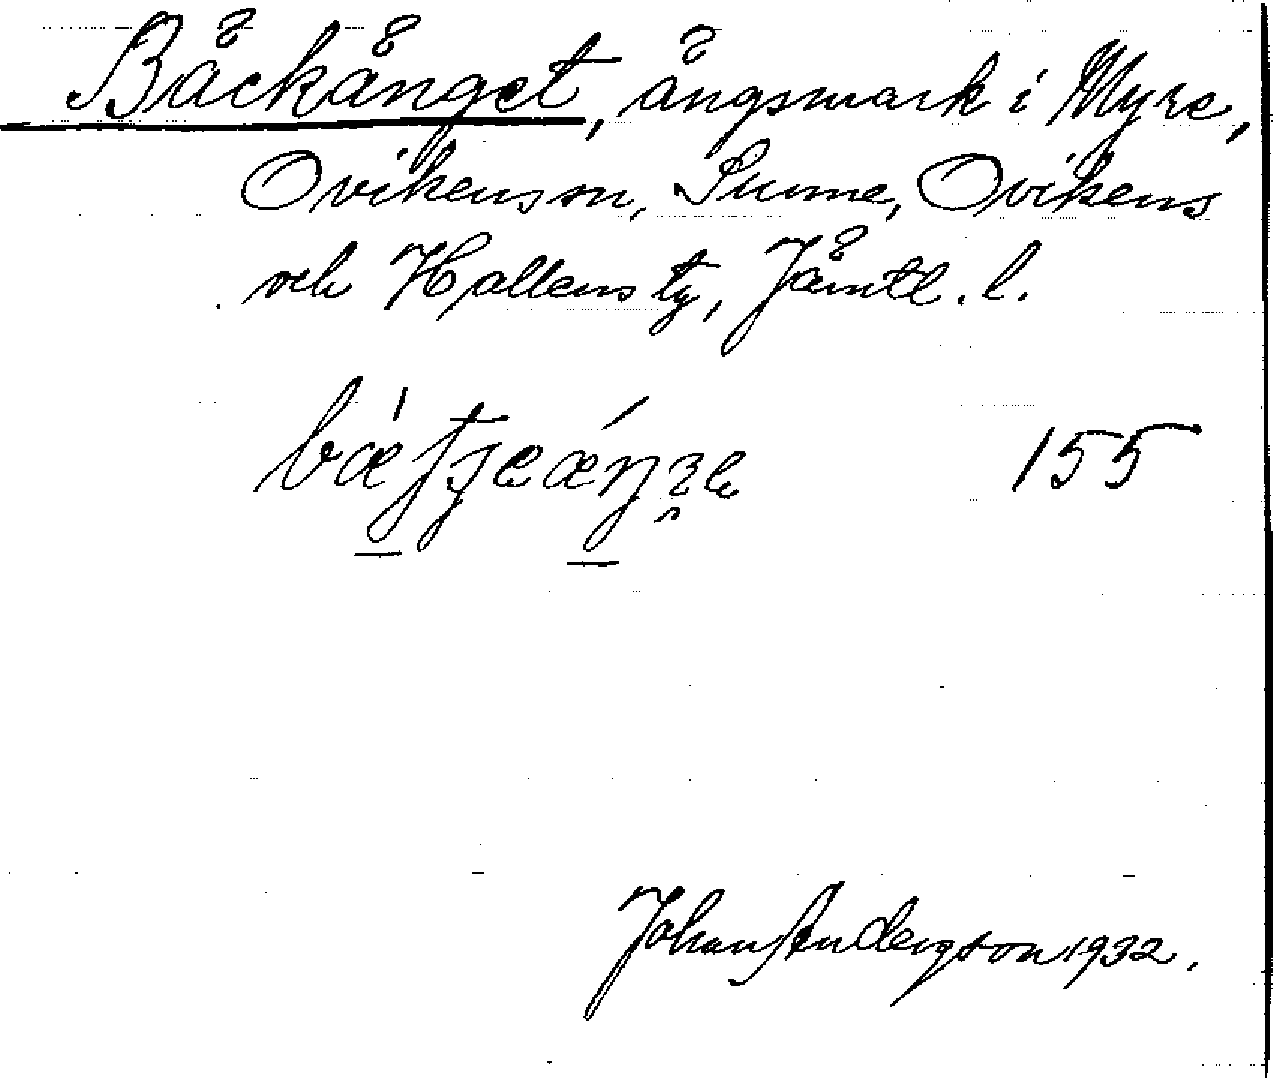 Bäckänget, ängsmark i Myre,
Ovikens sn, Sunne, Ovikens
och Hallens tg, Jämtl. l.
155
Johan Andersson 1932.